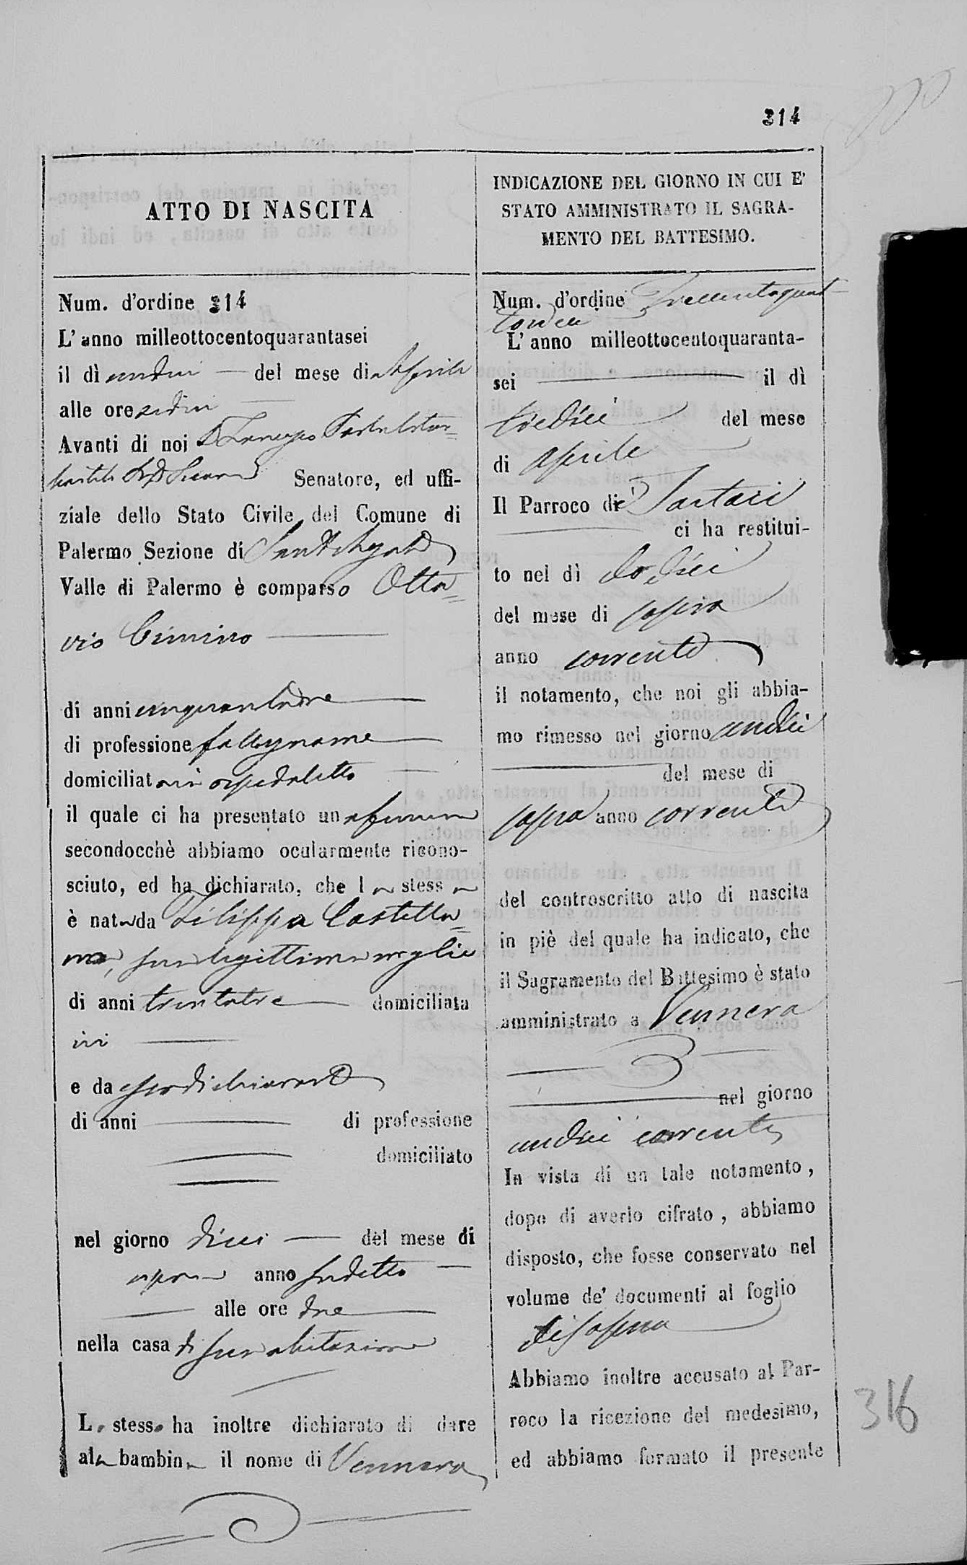 314
ATTO DI NASCITA
Num. d'ordine 314
L'anno milleottocentoquarantasei
il dì undici del mese di Aprile
alle ore sedici
Avanti di noi D.
Senatore, ed uffi-
ziale dello Stato Civile del Comune di
Palermo Sezione di Sant'Agata
Valle di Palermo è comparso Otta=
vio Cimino
di anni cinquantadue
di professione falegname
domiciliato in ospedaletto
il quale ci ha presentato una femina
secondocchè abbiamo ocularmente ricono-
sciuto, ed ha dichiarato, che la stessa
è nata da Filippa Castella=
na, sua legittima moglie
di anni trentatre domiciliata
ivi
e da esso dichiarante
di anni di professione
domiciliato
nel giorno dieci del mese di
sopra anno sudetto
alle ore due
nella casa di sua abitazione
Lo stesso ha inoltre dichiarato di dare
alla bambina il nome di Vennera
INDICAZIONE DEL GIORNO IN CUI E'
STATO AMMINISTRATO IL SAGRA-
MENTO DEL BATTESIMO.
Num. d'ordine Trecentoquat-
tordici
L'anno milleottocentoquaranta-
sei il dì
tredici del mese
di aprile
Il Parroco de' Tartari
ci ha restitui-
to nel dì dodici
del mese di sopra
anno corrente
il notamento, che noi gli abbia-
mo rimesso nel giorno undici
del mese di
sopra anno corrente
del controscritto atto di nascita
in piè del quale ha indicato, che
il Sagramento del Battesimo è stato
amministrato a Vennera
nel giorno
undici corrente
In vista di un tale notamento,
dopo di averlo cifrato, abbiamo
disposto, che fosse conservato nel
volume de' documenti al foglio
di sopra
Abbiamo inoltre accusato al Par-
roco la ricezione del medesimo,
ed abbiamo formato il presente
316